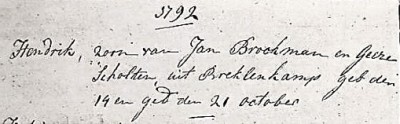 1792
Hendrik, zoon van Jan Brookman en Geeze
Scholten, uit Breklenkamp geb den
19 en ged den 21 october